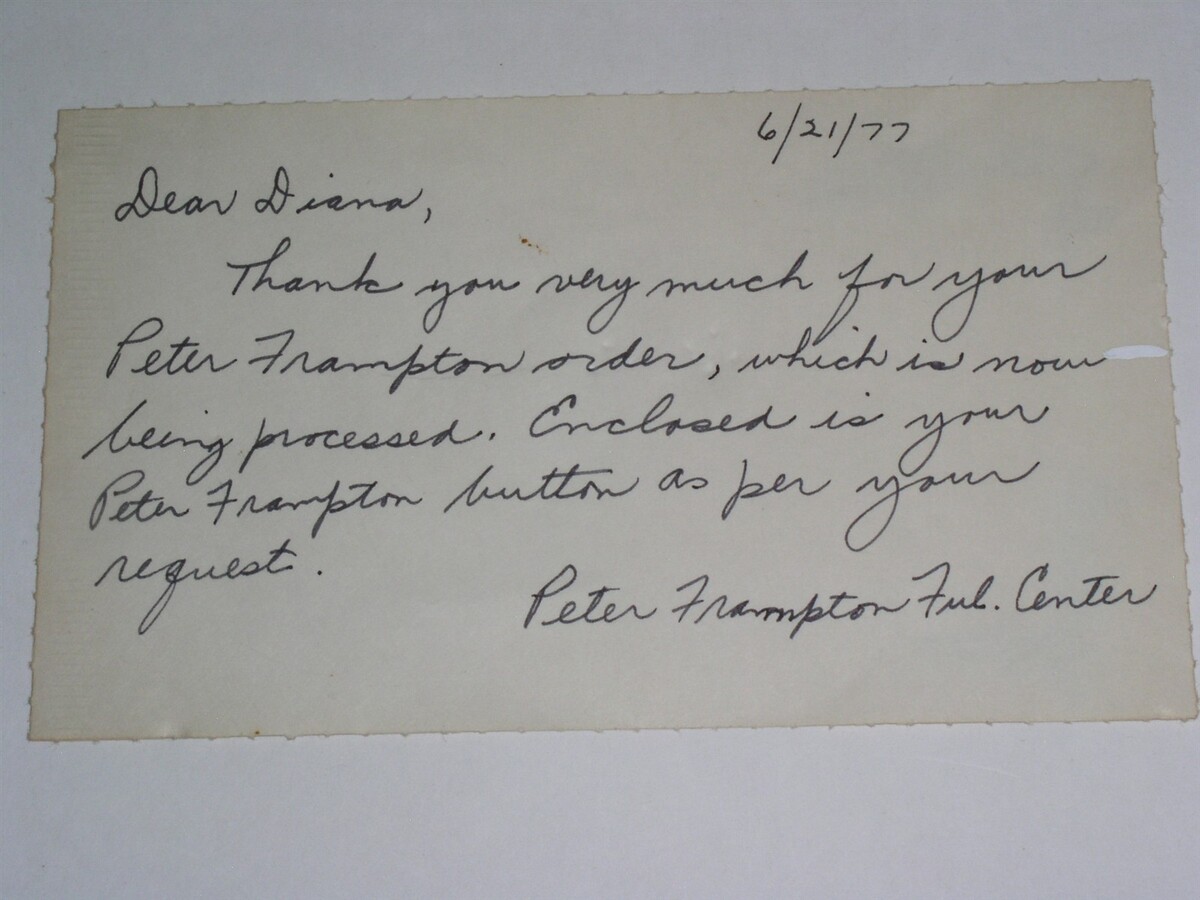 6/21/77
Dear Diana,
Thank you very much for your
Peter Frampton order, which is now
being processed. Enclosed is your
Peter Frampton button as per your
request.
Peter Frampton Ful. Center